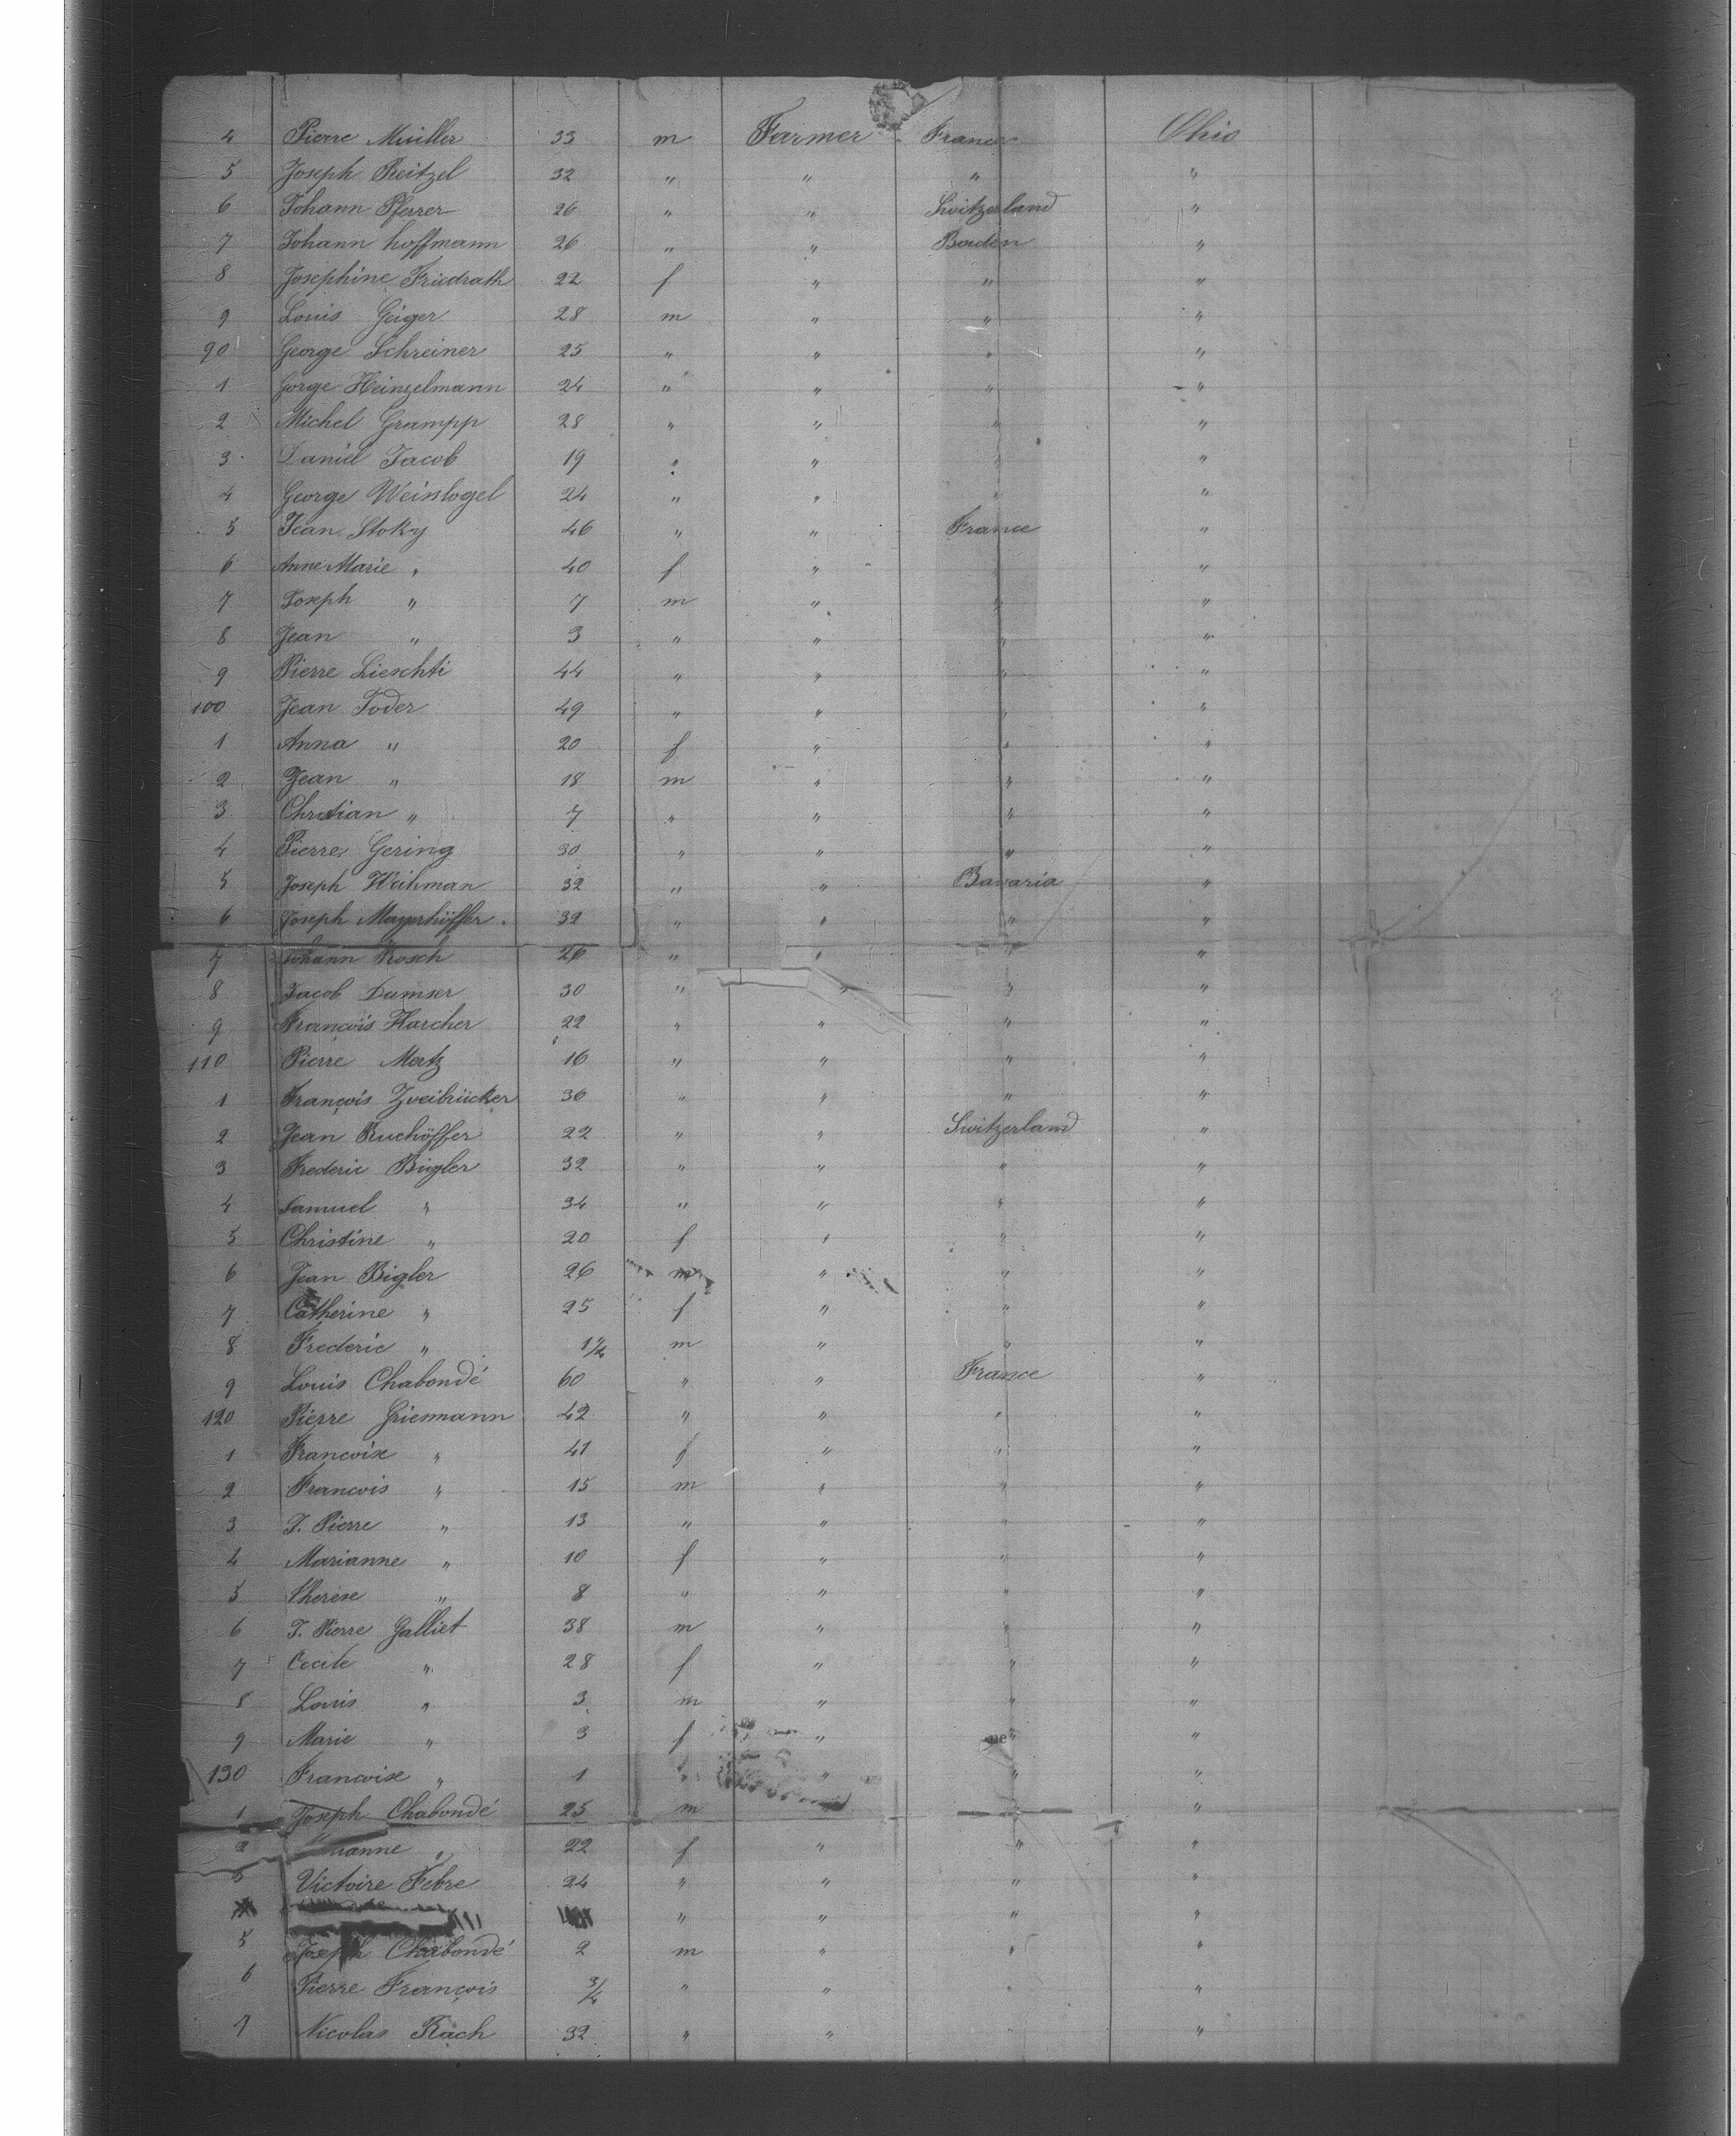 4 Pierre Müller 33 m Farmer France Ohio
5 Joseph Reitzel 32 " " " "
6 Johann Pferrer 26 " " Switzerland "
7 Johann hoffmann 26 " " Baden "
8 Josephine Friedrath 22 f " " "
9 Louis Geiger 28 m " " "
90 George Schreiner 25 " " " "
1 Gorge Heinzelmann 24 " " " "
2 Michel Grampp 28 " " " "
3 Daniel Jacob 19 " " " "
4 George Weisslogel 24 " " " "
5 Jean Stoky 46 " " France "
6 Anne Marie " 40 f " " "
7 Joseph " 7 m " " "
8 Jean " 3 " " " "
9 Pierre Lieschti 44 " " " "
100 Jean Joder 49 " " " "
1 Anna " 20 f " " "
2 Jean " 18 m " " "
3 Christian " 7 " " " "
4 Pierre Gering 30 " " " "
5 Joseph Weihman 32 " " Bavaria "
6 Joseph Mayerhöffer 32 " " " "
7 Johann Rosch 26 " " " "
8 Jacob Dumser 30 " " " "
9 François Karcher 22 " " " "
110 Pierre Mertz 16 " " " "
1 François Zweibrücker 36 " " " "
2 Jean Ruchöffer 22 " " Switzerland "
3 Frederic Bigler 32 " " " "
4 Samuel " 34 " " " "
5 Christine " 20 f " " "
6 Jean Bigler 26 m " " "
7 Catherine " 25 f " " "
8 Frederic " 1/2 m " " "
9 Louis Chabondé 60 " " France "
120 Pierre Griesmann 42 " " " "
1 Francoise " 41 f " " "
2 Francois " 15 m " " "
3 J. Pierre " 13 " " " "
4 Marianne " 10 f " " "
5 therese " 8 " " " "
6 J. Pierre Galliet 38 m " " "
7 Cecile " 28 f " " "
8 Louis " 3 m " " "
9 Marie " 3 f " " "
130 Francoise " 1 " " " "
1 Joseph Chabondé 25 m "
2 " 22 f " " "
3 Victoire Febre 24 " " " "
" " " "
5 Joseph Chabondé 2 m " " "
6 Pierre François 3/4 " " " "
7 Nicolas Rach 32 " " "